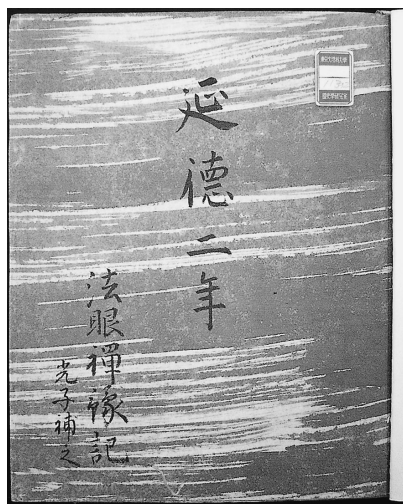 延德二年
法眼禪縁記
光子補之